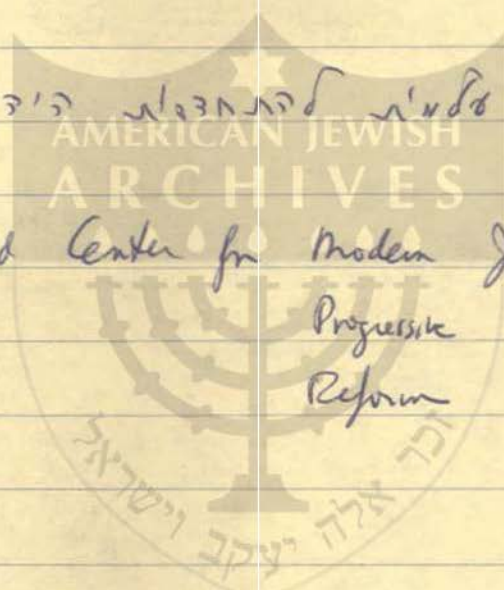 עולמית להתחדשות
AMERICAN JEWISH
ARCHIVES
Center for Modern
Progressive
Reform
זכר אלה יעקב וישראל